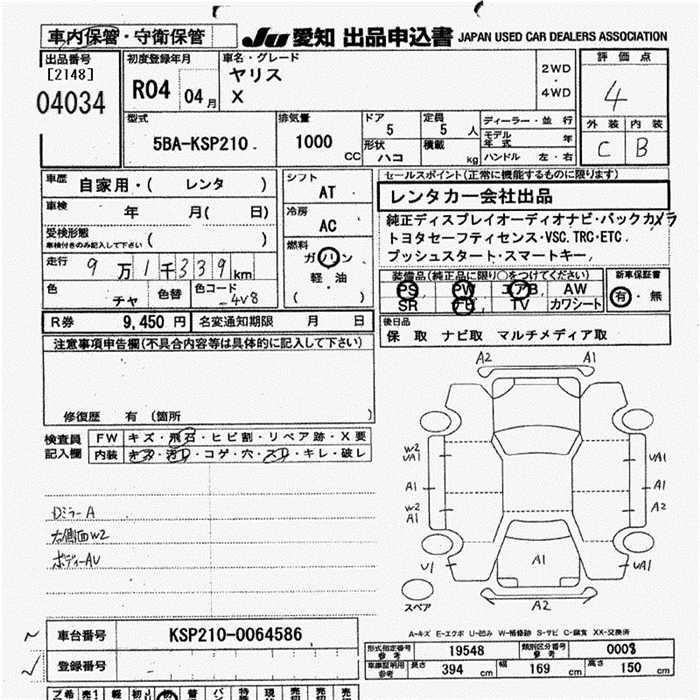 車内保管・守衛保管
JU 愛知 出品申込書 JAPAN USED CAR DEALERS ASSOCIATION
出品番号
[2148]
04034
初度登録年月
R04 04月
車名・グレード
ヤリス
X
2WD
・
4WD
評価点
4
外装 内装
C B
型式
5BA-KSP210
排気量
1000
CC
ドア
5
定員
5 人
形状
ハコ
積載
kg
ディーラー・並行
モデル年式 年
ハンドル 左・右
車歴 自家用・( レンタ )
車検 年 月( 日)
受検形態
車検付きのみ記入して下さい ( )
走行 9万1千339km
色 チャ
色替
色コード
4V8
シフト
AT
冷房
AC
燃料
ガソリン
軽・油
( )
セールスポイント(正常に機能するものに限ります)
レンタカー会社出品
純正ディスプレイオーディオナビ・バックカメラ
トヨタセーフティセンス・VSC.TRC・ETC.
プッシュスタート・スマートキー,
装備品(純正品に限り○をつけてください)
PS PW エアB AW
SR TV カワシート
新車保証書
有・無
R券 9,450 円 名変通知期限 月 日
後日品
保 取 ナビ取 マルチメディア取
注意事項申告欄(不具合内容等は具体的に記入して下さい)
修復歴 有 (箇所 )
検査員
記入欄
FW キズ・飛石・ヒビ割・リペア跡・X要
内装 キズ・汚レ・コゲ・穴・スレ・キレ・破レ
DミラーA
左側面W2
ボディーAU
A2 A1
W2
UA1
A1
W2
A1
U1
UA1
A2
UA1
A1
A2
スペア
A-キズ E-エクボ U-凹み W-補修跡 S-サビ C-腐食 XX-交換済
車台番号 KSP210-0064586
登録番号
型式指定番号
参考
19548
類別区分番号
参考
000$
車庫証明用
参考
長さ 394 cm 幅 169 cm 高さ 150 cm